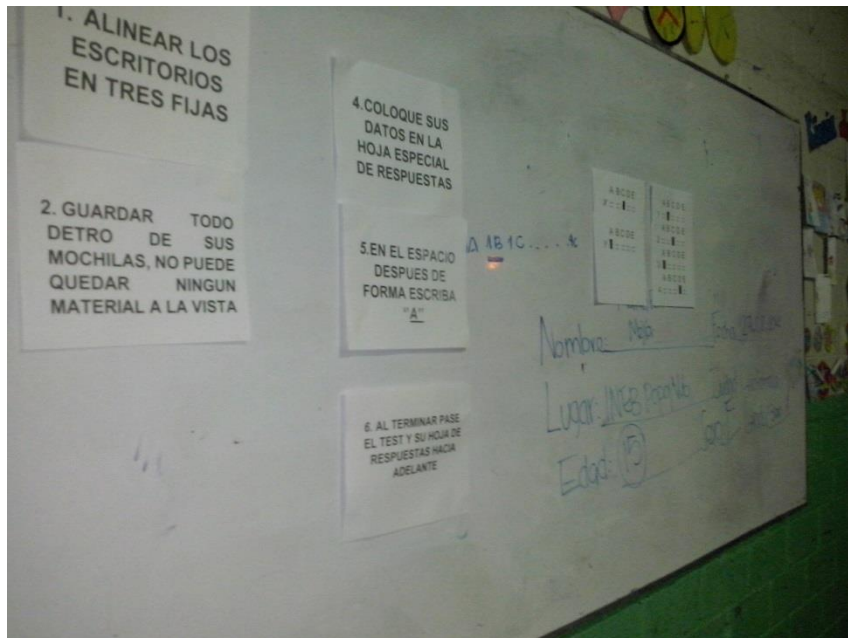 1. ALINEAR LOS
ESCRITORIOS
EN TRES FIJAS
2. GUARDAR TODO
DETRO DE SUS
MOCHILAS, NO PUEDE
QUEDAR NINGUN
MATERIAL A LA VISTA
4.COLOQUE SUS
DATOS EN LA
HOJA ESPECIAL
DE RESPUESTAS
5.EN EL ESPACIO
DESPUES DE
FORMA ESCRIBA
"A"
6. AL TERMINAR PASE
EL TEST Y SU HOJA DE
RESPUESTAS HACIA
ADELANTE
1B 1C
A B C D E
A B C D E
A B C D E
A B C D E
A B C D E
A B C D E
Nombre:
Lugar: INEB
Edad: 15